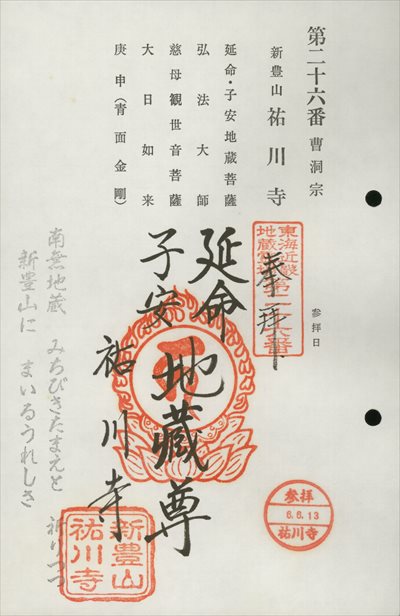 第二十六番 曹洞宗
新豊山 祐川寺
延命・子安地蔵菩薩
弘法大師
慈母観世音菩薩
大日如来
庚申(青面金剛)
参拝日
東海近畿
地蔵霊場
第二十六番
奉拝
延命
子安
地蔵尊
祐川寺
南無地蔵 みちびきたまえと 祈りつつ
新豊山に まいるうれしさ
参拝
6.6.13
祐川寺
新豊山
祐川寺